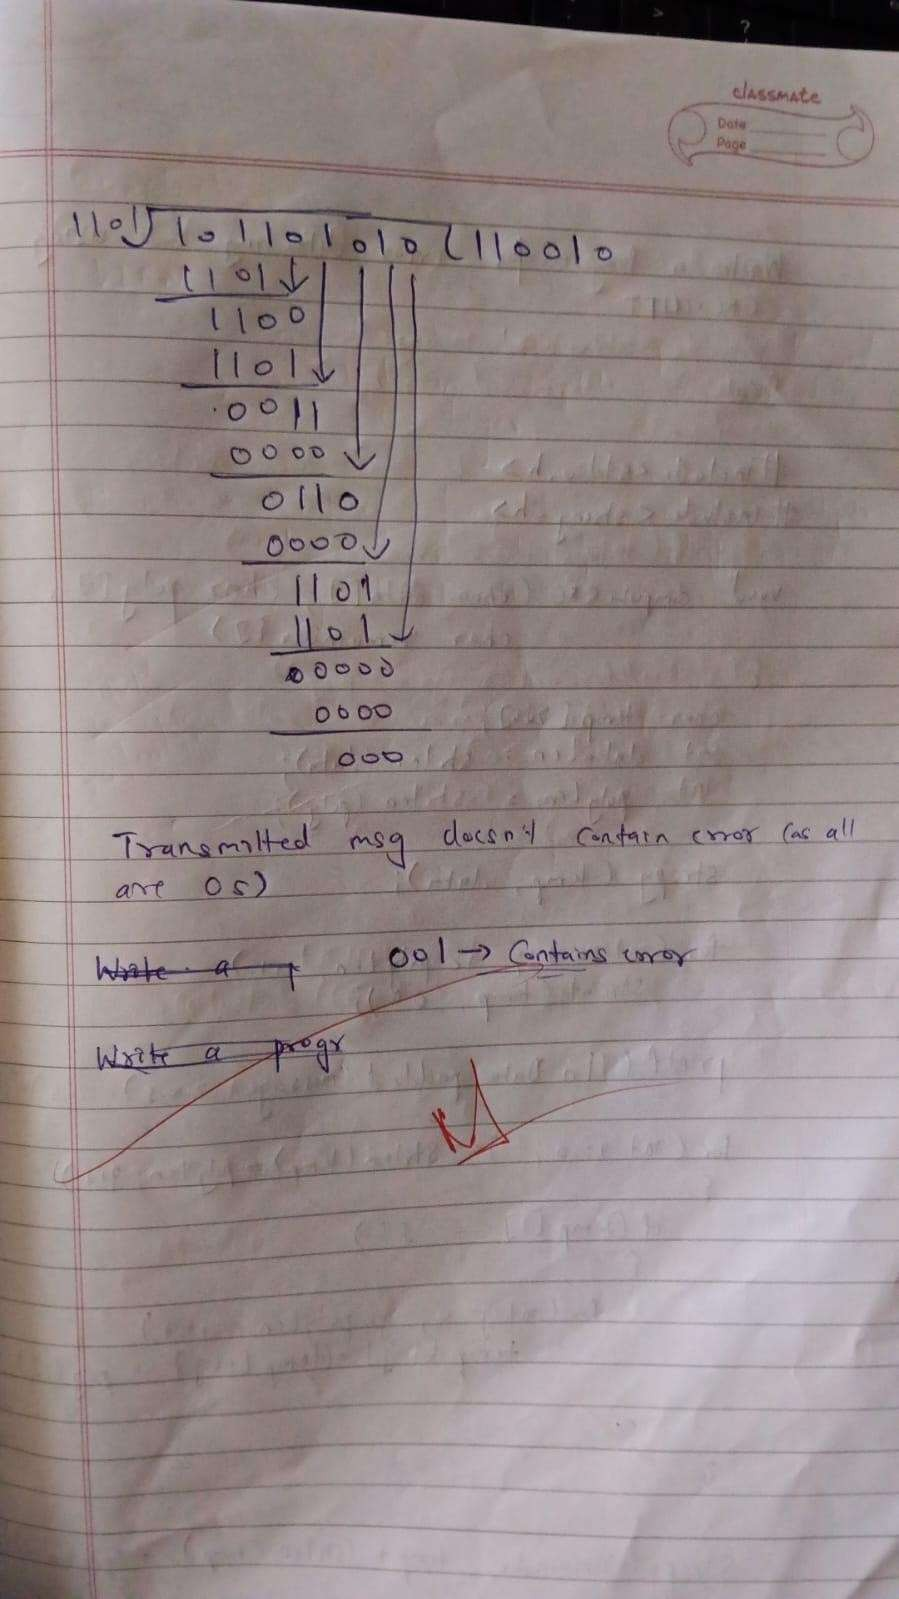 classmate
Date
Page
1101)101101010(110010
1101
1100
1101
0011
0000
0110
0000
1101
1101
00000
0000
000
Transmitted msg doesn't contain error (as all
are 0s)
Write a 001 → Contains error
Write a progr